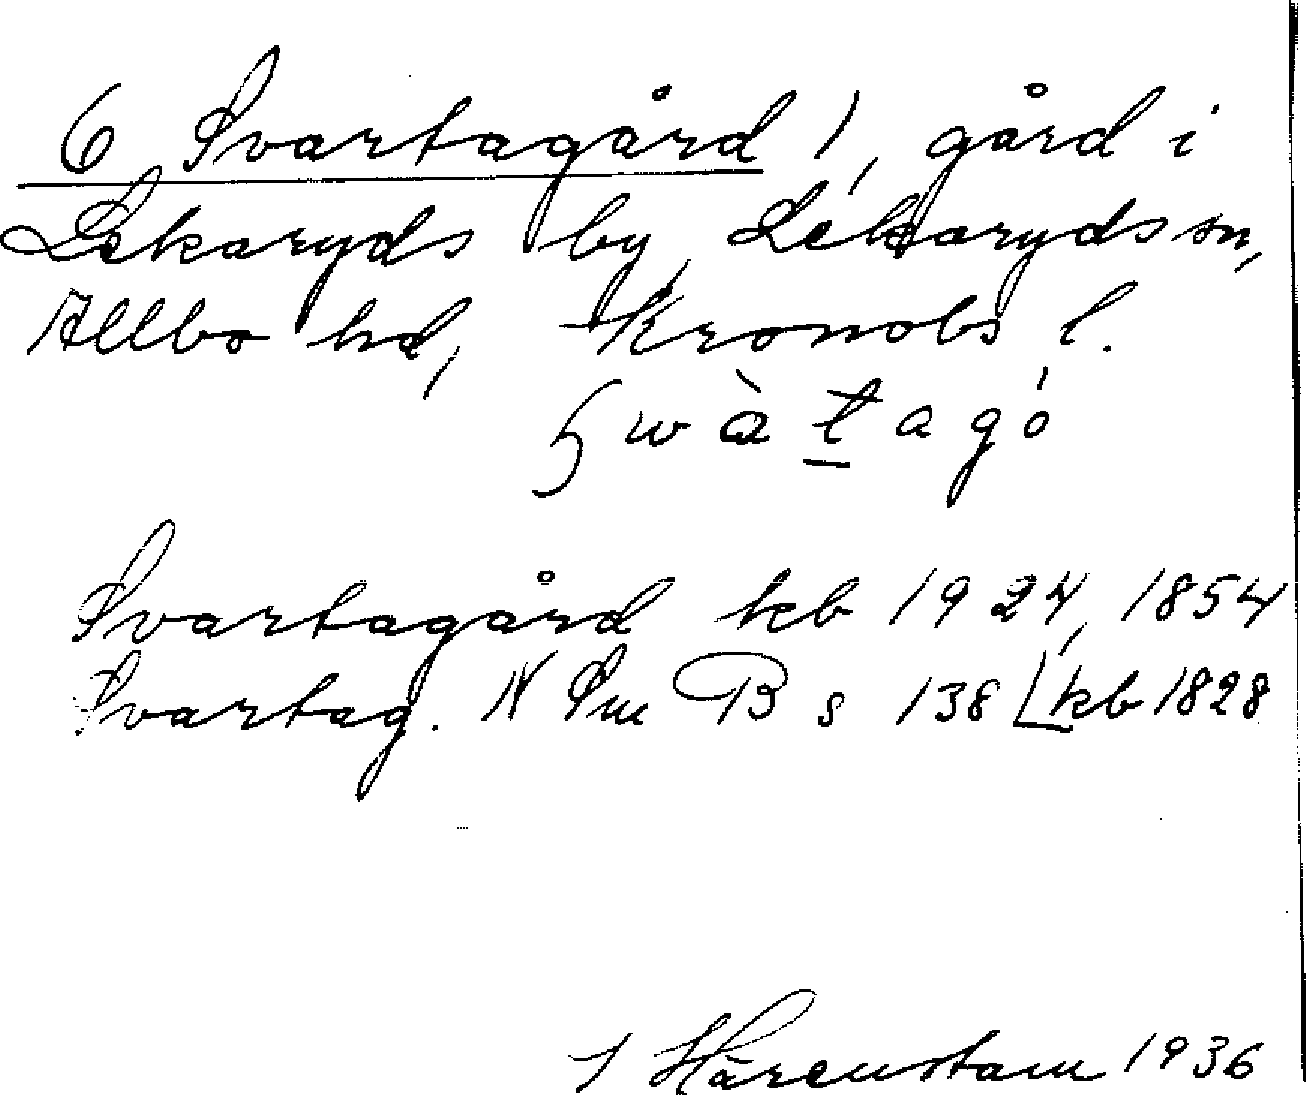 6 Svartagård 1, gård i
Lekaryds by, Lekaryds sn,
Allbo hd, Kronobs l.
swàt̲agó
Svartagård kb 1924, 1854
Svartag. N Sm B s 138 kb 1828
J Härenstam 1936